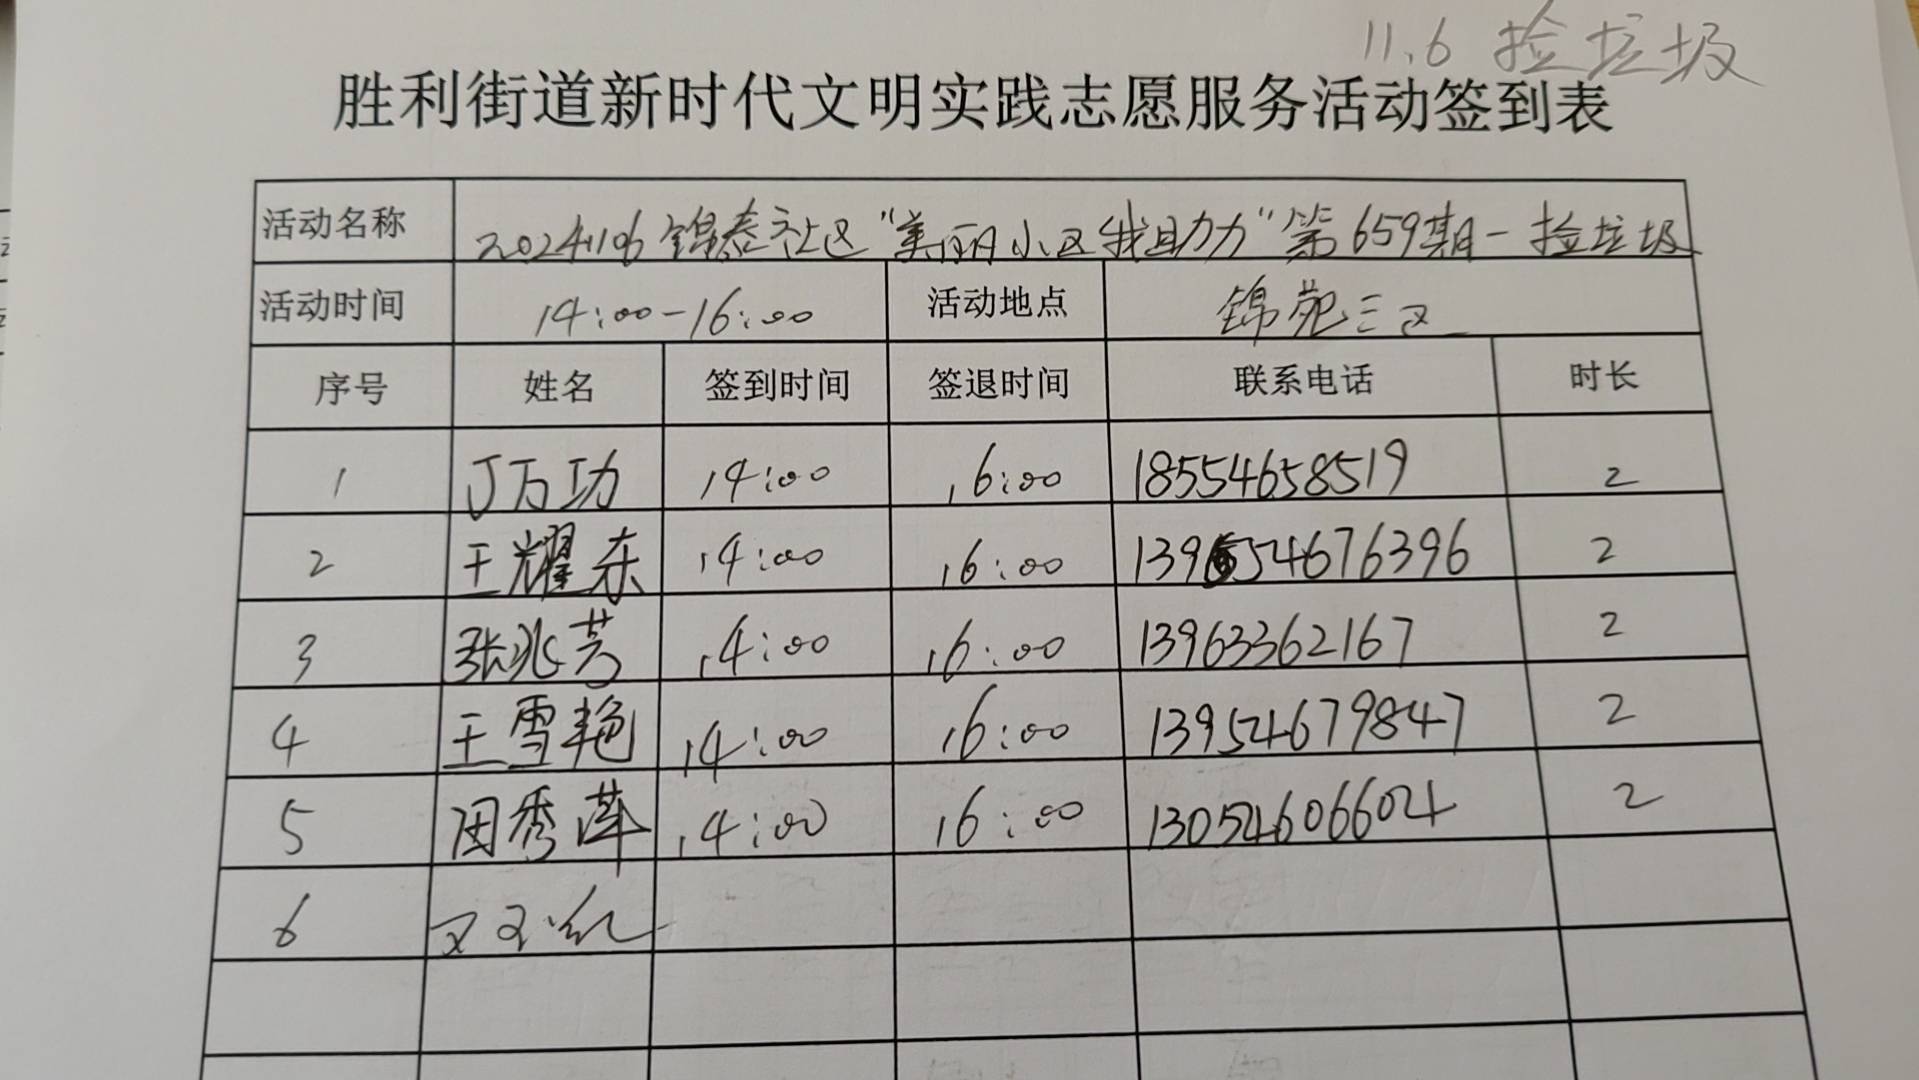 11.6 捡垃圾
胜利街道新时代文明实践志愿服务活动签到表
活动名称 20241106 锦泰社区“美丽小区我助力”第659期-捡垃圾
活动时间 14:00-16:00 活动地点 锦苑三区
序号 姓名 签到时间 签退时间 联系电话 时长
1 丁万功 14:00 16:00 18554658519 2
2 王耀东 14:00 16:00 13954676396 2
3 张兆芳 14:00 16:00 13963362167 2
4 王雪艳 14:00 16:00 13954679847 2
5 田秀萍 14:00 16:00 13054606604 2
6